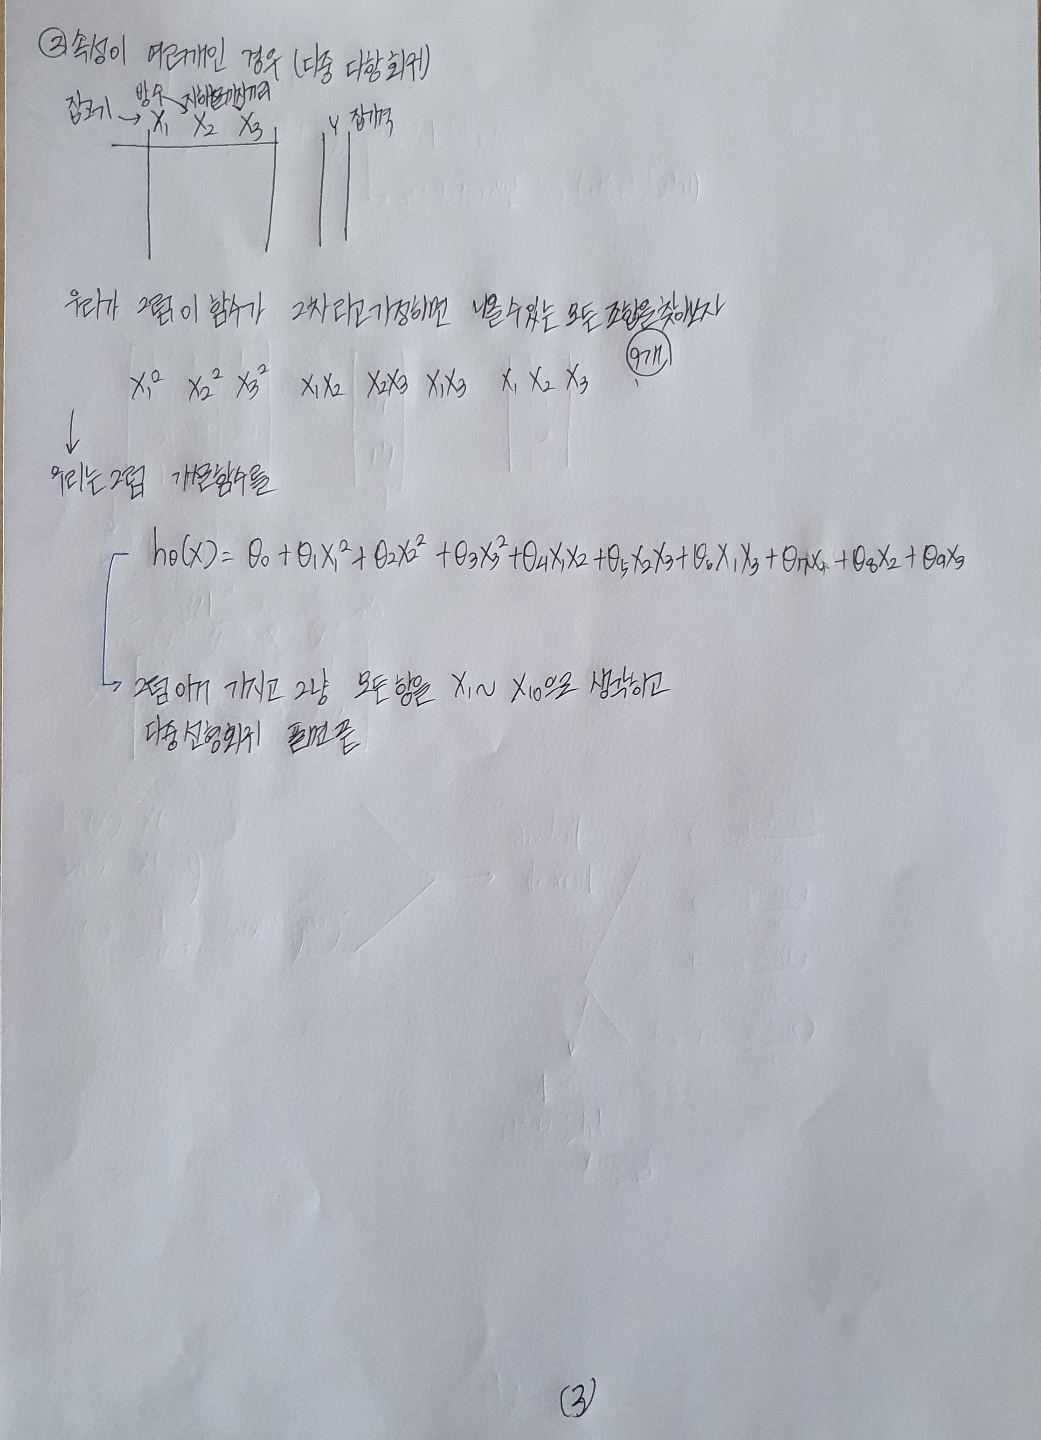 ② 속성이 여러개인 경우 (다중 다항 회귀)
방수 지하철까지거리
집크기 → X₁ X₂ X₃ Y 집가격
우리가 그럼 이 함수가 2차라고 가정하면 나올 수 있는 모든 조합을 찾아보자
9개
X₁² X₂² X₃² X₁X₂ X₂X₃ X₁X₃ X₁ X₂ X₃
↓
우리는 그럼 가설함수를
hθ(X) = θ₀ + θ₁X₁² + θ₂X₂² + θ₃X₃² + θ₄X₁X₂ + θ₅X₂X₃ + θ₆X₁X₃ + θ₇X₁ + θ₈X₂ + θ₉X₃
그럼 이거 가지고 그냥 모든 항을 X₁ ~ X₁₀으로 생각하고
다중선형회귀 풀면 끝
(3)